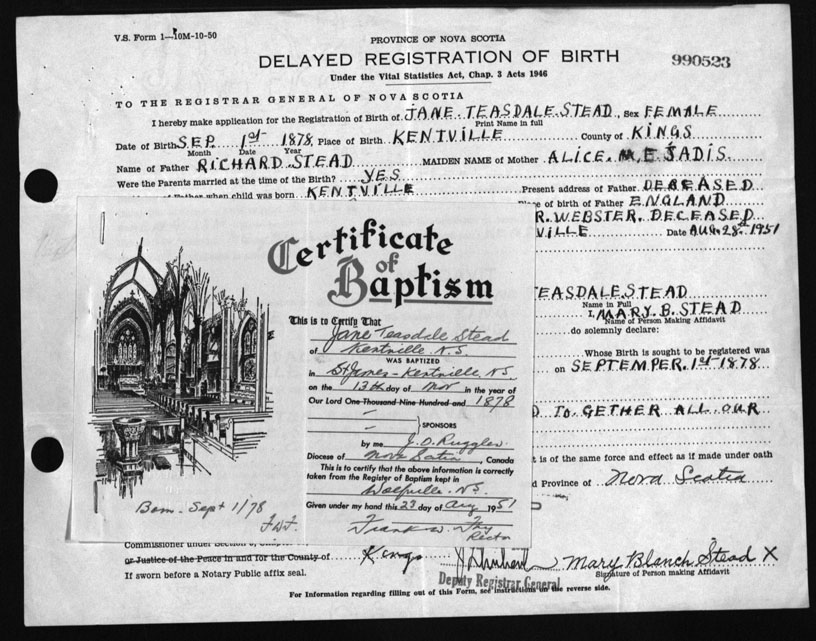 V.S. Form 1—10M-10-50
PROVINCE OF NOVA SCOTIA
DELAYED REGISTRATION OF BIRTH
990523
Under the Vital Statistics Act, Chap. 3 Acts 1946
TO THE REGISTRAR GENERAL OF NOVA SCOTIA
I hereby make application for the Registration of Birth of JANE. TEASDALE. STEAD, Sex FEMALE
Print Name in full
Date of Birth SEP. 1st 1878, Place of Birth KENTVILLE County of KINGS
Month Date Year
Name of Father RICHARD. STEAD MAIDEN NAME of Mother ALICE. M. E JADIS.
Were the Parents married at the time of the Birth? YES
when child was born KENTVILLE Present address of Father DECEASED
Place of birth of Father ENGLAND
R. WEBSTER. DECEASED
VILLE Date AUG. 28th 1951
TEASDALE. STEAD
Name in Full
I, MARY. B. STEAD
Name of Person Making Affidavit
do solemnly declare:
Whose Birth is sought to be registered was
on SEPTEMPER. 1st 1878.
TO GETHER ALL OUR
is of the same force and effect as if made under oath
Province of Nova Scotia
Certificate
of
Baptism
This is to Certify That
Jane Teasdale Stead
of Kentville N.S.
WAS BAPTIZED
in St James - Kentville NS.
on the 13th day of Nov in the year of
Our Lord One Thousand Nine Hundred and 1878
SPONSORS
by me J. O. Ruggles.
Diocese of Nova Scotia, Canada
This is to certify that the above information is correctly
taken from the Register of Baptism kept in
Wolfville. N.S.
Given under my hand this 23 day of Aug 1951
Frank W.
Rector
Born Sept 1/78
Commissioner under
or Justice of the Peace in and for the County of Kings
If sworn before a Notary Public affix seal.
Deputy Registrar General
Mary Blanch Stead X
Signature of Person making Affidavit
For Information regarding filling out of this Form, see instructions on the reverse side.